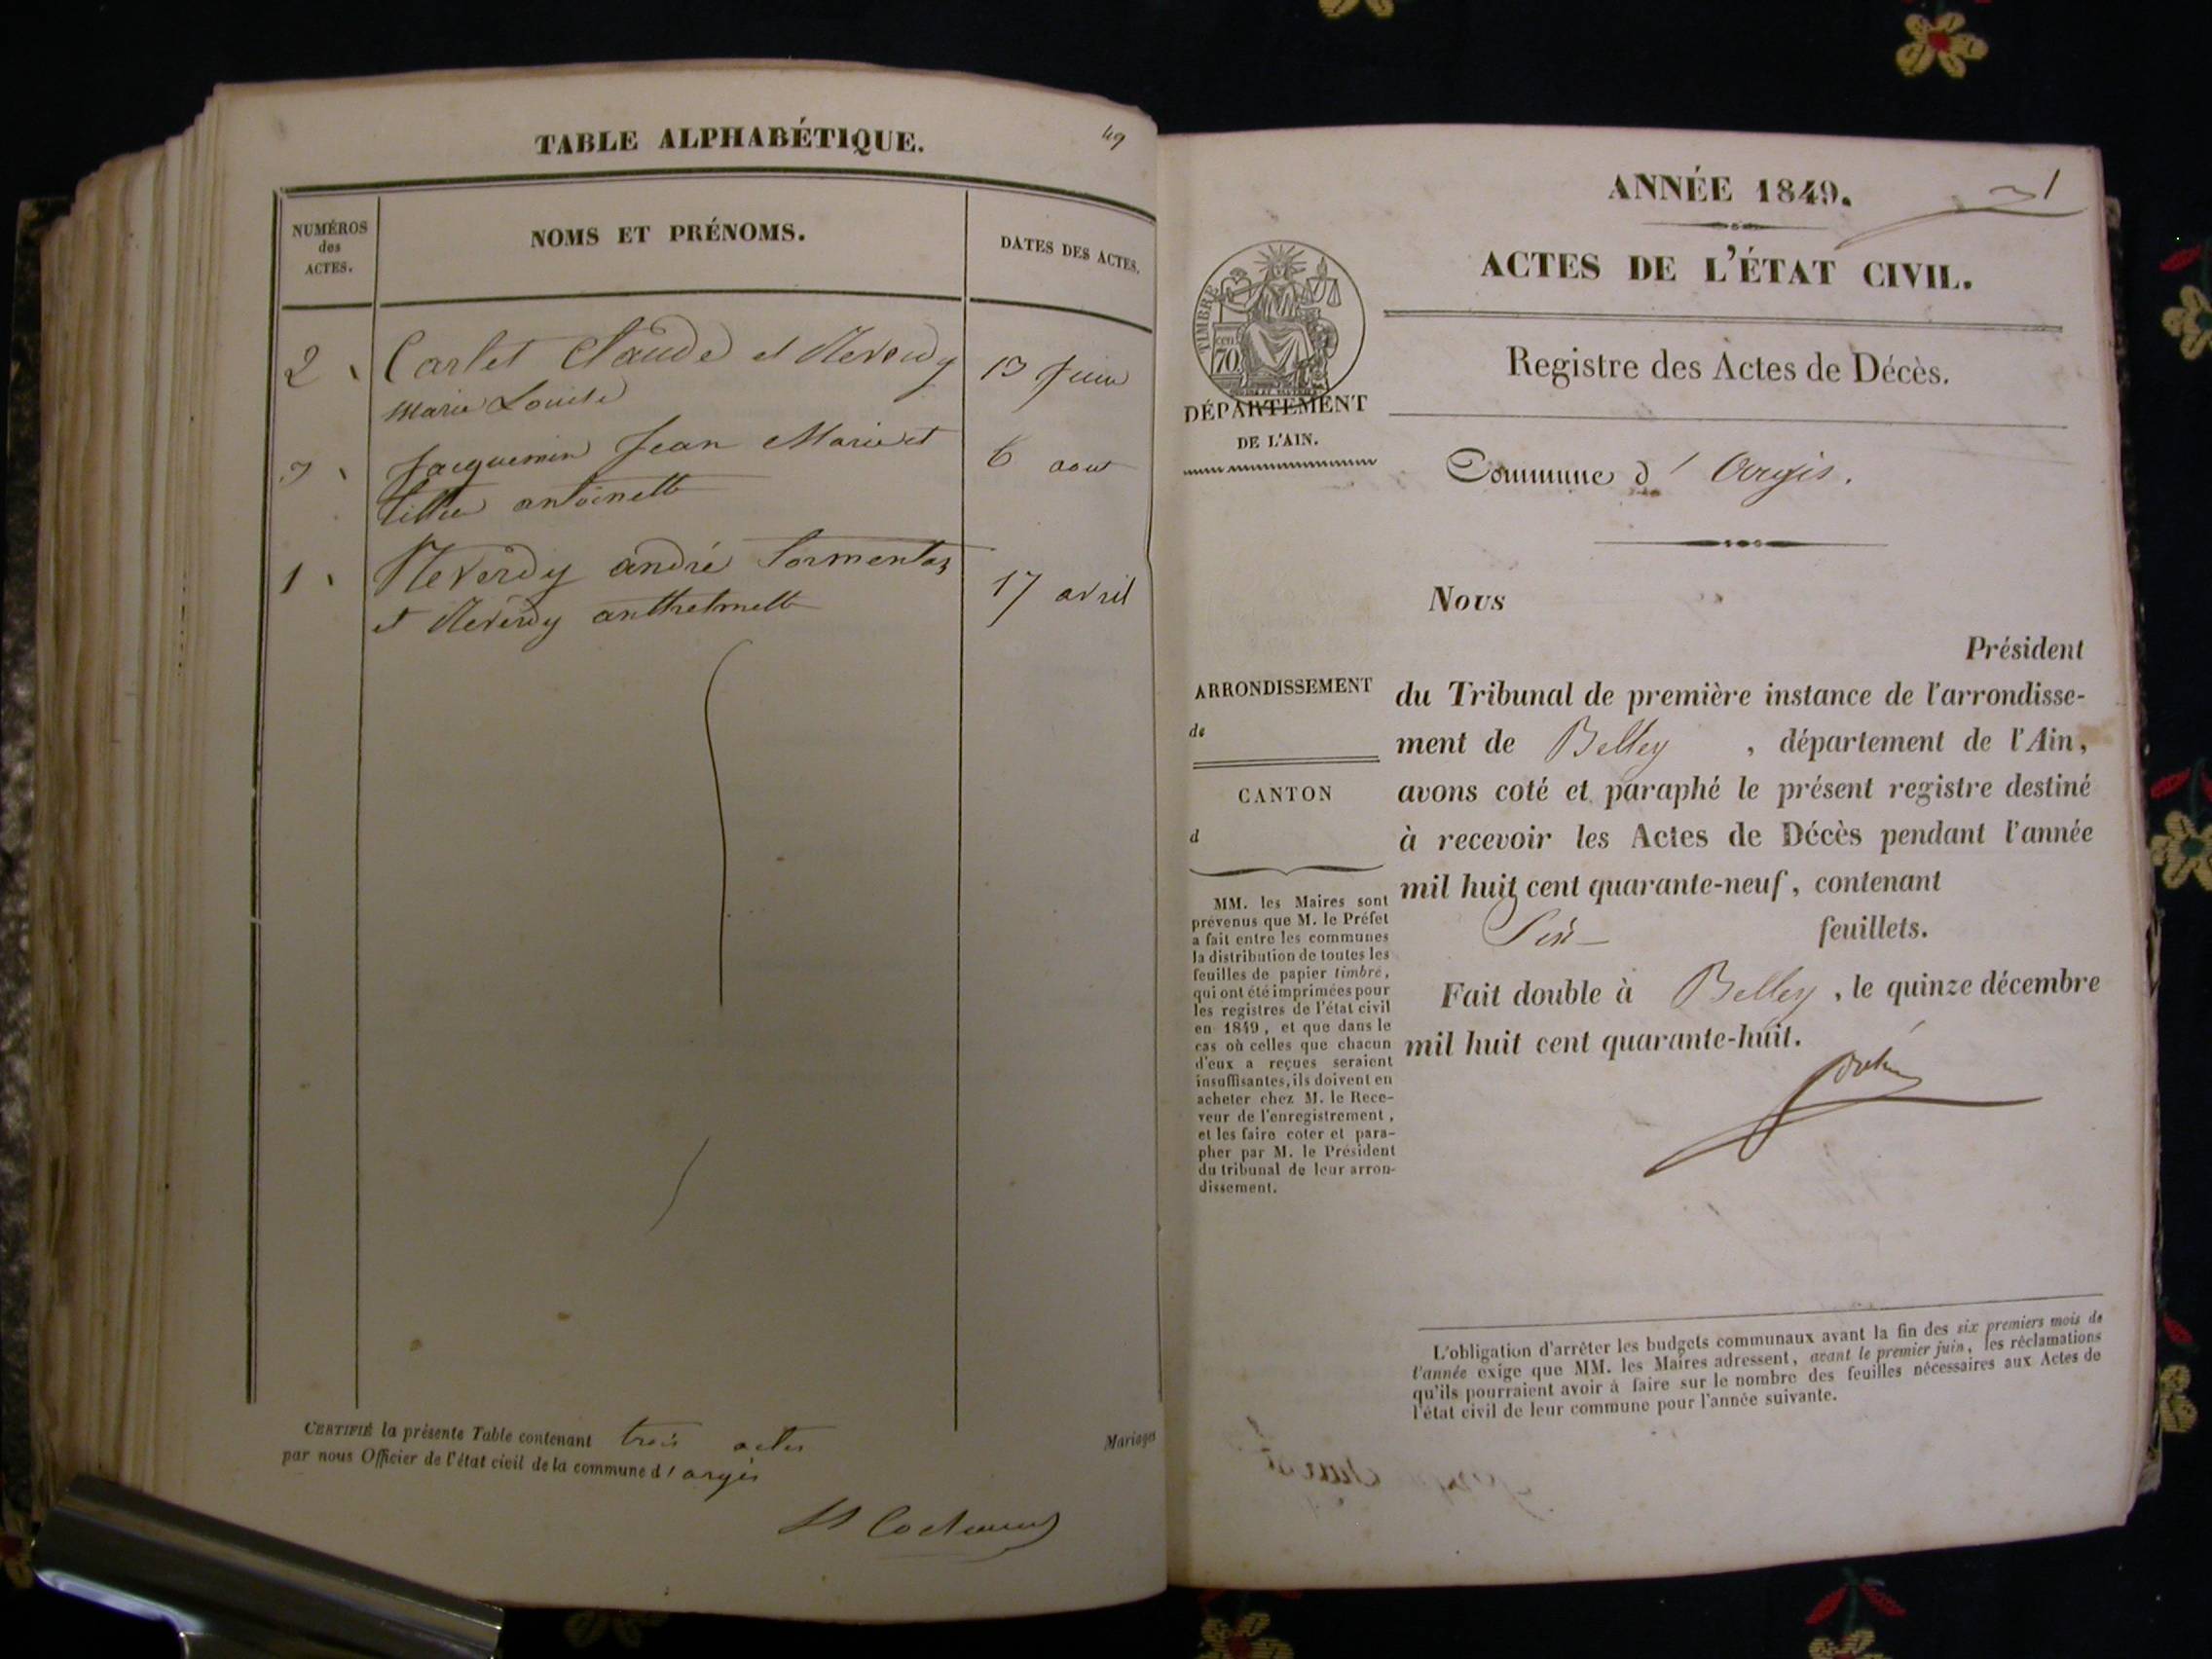 TABLE ALPHABÉTIQUE.
49
NUMÉROS
des
ACTES.
NOMS ET PRÉNOMS.
DATES DES ACTES.
2 Carlet Claude et Reverdy 13 Juin
Marie Louise
3 Jacquemin Jean Marie et 6 aout
antoinette
1 Reverdy andré Tormentos 17 avril
et Reverdy anthelmette
CERTIFIÉ la présente Table contenant trois actes
par nous Officier de l'état civil de la commune d'argis
Mariages
ANNÉE 1849.
1
ACTES DE L'ÉTAT CIVIL.
TIMBRE
70
Registre des Actes de Décès.
DÉPARTEMENT
DE L'AIN.
Commune d'Argis.
Nous
Président
ARRONDISSEMENT
de
CANTON
d
MM. les Maires sont
prévenus que M. le Préfet
a fait entre les communes
la distribution de toutes les
feuilles de papier timbré,
qui ont été imprimées pour
les registres de l'état civil
en 1849, et que dans le
cas où celles que chacun
d'eux a reçues seraient
insuffisantes, ils doivent en
acheter chez M. le Rece-
veur de l'enregistrement,
et les faire coter et para-
pher par M. le Président
du tribunal de leur arron-
dissement.
du Tribunal de première instance de l'arrondisse-
ment de Belley, département de l'Ain,
avons coté et paraphé le présent registre destiné
à recevoir les Actes de Décès pendant l'année
mil huit cent quarante-neuf, contenant
Six feuillets.
Fait double à Belley, le quinze décembre
mil huit cent quarante-huit.
L'obligation d'arrêter les budgets communaux avant la fin des six premiers mois de
l'année exige que MM. les Maires adressent, avant le premier juin, les réclamations
qu'ils pourraient avoir à faire sur le nombre des feuilles nécessaires aux Actes de
l'état civil de leur commune pour l'année suivante.